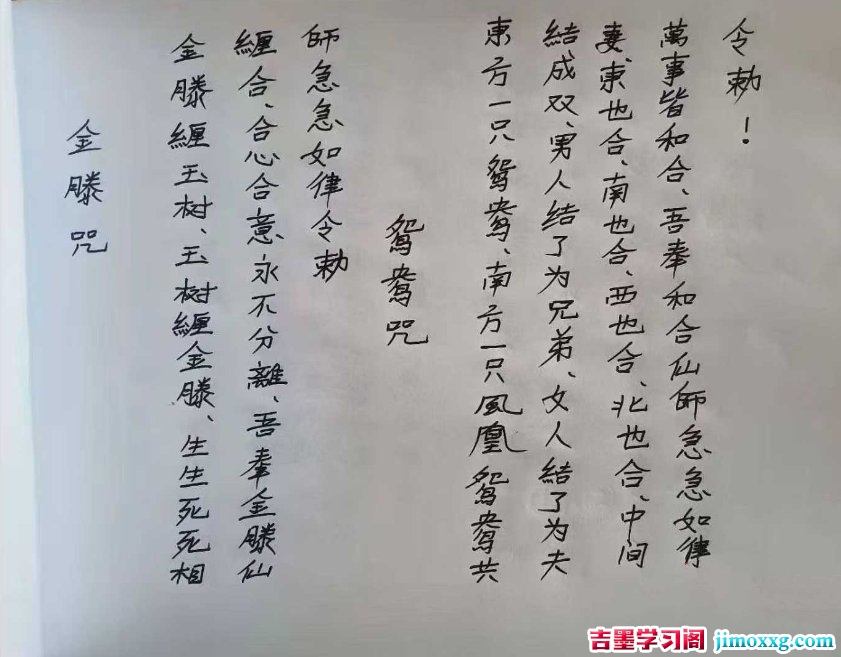 金滕咒
金滕緾玉树、玉树緾金滕、生生死死相
緾合、合心合意永不分離、吾奉金滕仙
師急急如律令勅
鴛鴦咒
東方一只鴛鴦、南方一只凤凰鴛鴦共
結成双、男人結了为兄弟、女人結了为夫
妻、東也合、南也合、西也合、北也合、中间
萬事皆和合、吾奉和合仙師急急如律
令勅！
吉墨学习阁 jimoxxg.com